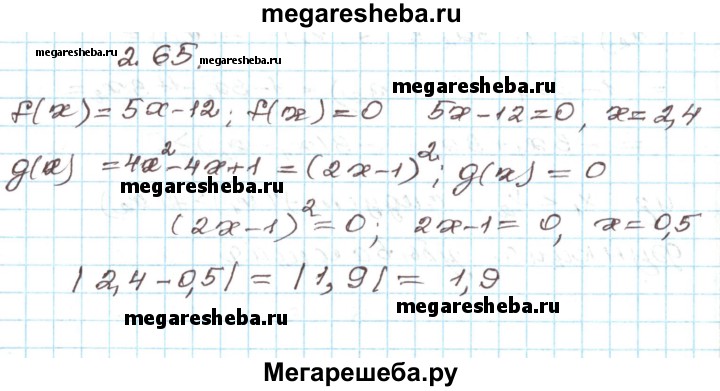 megaresheba.ru
megaresheba.ru 2.65. megaresheba.ru
f(x) = 5x-12; f(x) = 0 5x-12=0, x=2,4
g(x) = 4x²-4x+1 = (2x-1)²; g(x) = 0
megaresheba.ru
(2x-1)²=0; 2x-1= 0, x=0,5
|2,4-0,5| = |1,9| = 1,9
megaresheba.ru megaresheba.ru
Мегарешеба.ру